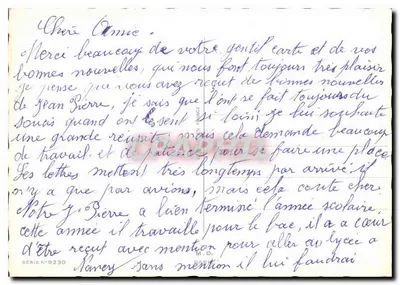 Chère Annie.
Merci beaucoup de votre gentil carte et de vos
bonnes nouvelles, qui nous font toujours très plaisir
je pense que vous avez reçut de bonnes nouvelles
de Jean Pierre, je sais que l'ont se fait toujours du
soucis quand on les sent si loin je lui souhaite
une grande réussite mais cela demande beaucoup
de travail et de pour se faire une place
Ses lettres mettent très longtemps par arrivé il
n'y a que par avions, mais cela coute cher
Notre J. Pierre a bien terminé l'année scolaire
cette année il travaille pour le bac, il a a cœur
d'être reçut avec mention pour aller au lycée a
Nancy sans mention il lui faudrai
SERIE N° 9230
M.D.